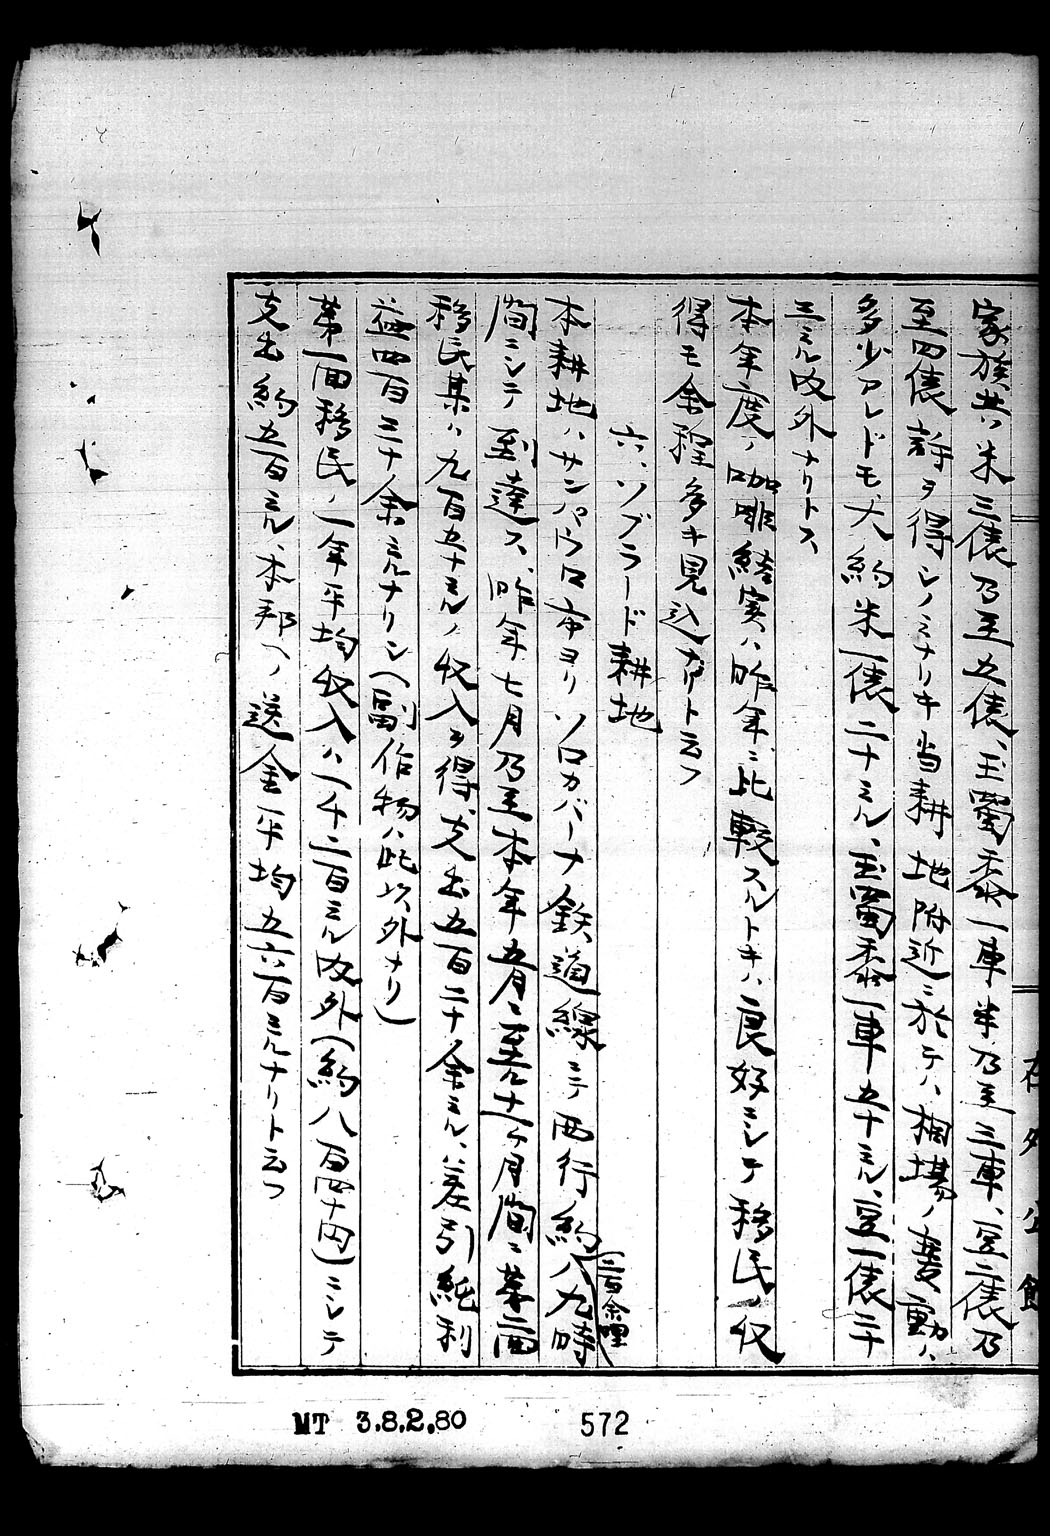 家族共ハ米三俵乃至五俵、玉蜀黍一車半乃至三車、豆二俵乃
至四俵許ヲ得シノミナリキ当耕地附近ニ於テハ相場ノ変動ハ
多少アレドモ大約米一俵二十ミル、玉蜀黍一車五十ミル、豆一俵二十
三ミル内外ナリトス
本年度ノ咖啡結実ハ昨年ニ比較スルトキハ良好ニシテ移民ノ収
得モ余程多キ見込ナリト云フ
六、ソブラード耕地
本耕地ハサンパウロ市ヨリソロカバーナ鉄道線ニテ西行ノ約八九時
(三百余哩)
間ニシテ到達ス、昨年七月乃至本年五月ニ至ル十一ヶ月間ニ第二回
移民某ハ九百五十ミルノ収入ヲ得、支出五百二十余ミル、差引純利
益四百三十余ミルナリシ(副作物ハ此以外ナリ)
第一回移民ノ一年平均収入ハ一千二百ミル内外(約八百四十円)ニシテ
支出約五百ミル、本邦ヘノ送金平均五六百ミルナリト云フ
在外公館
MT 3.8.2.80
572